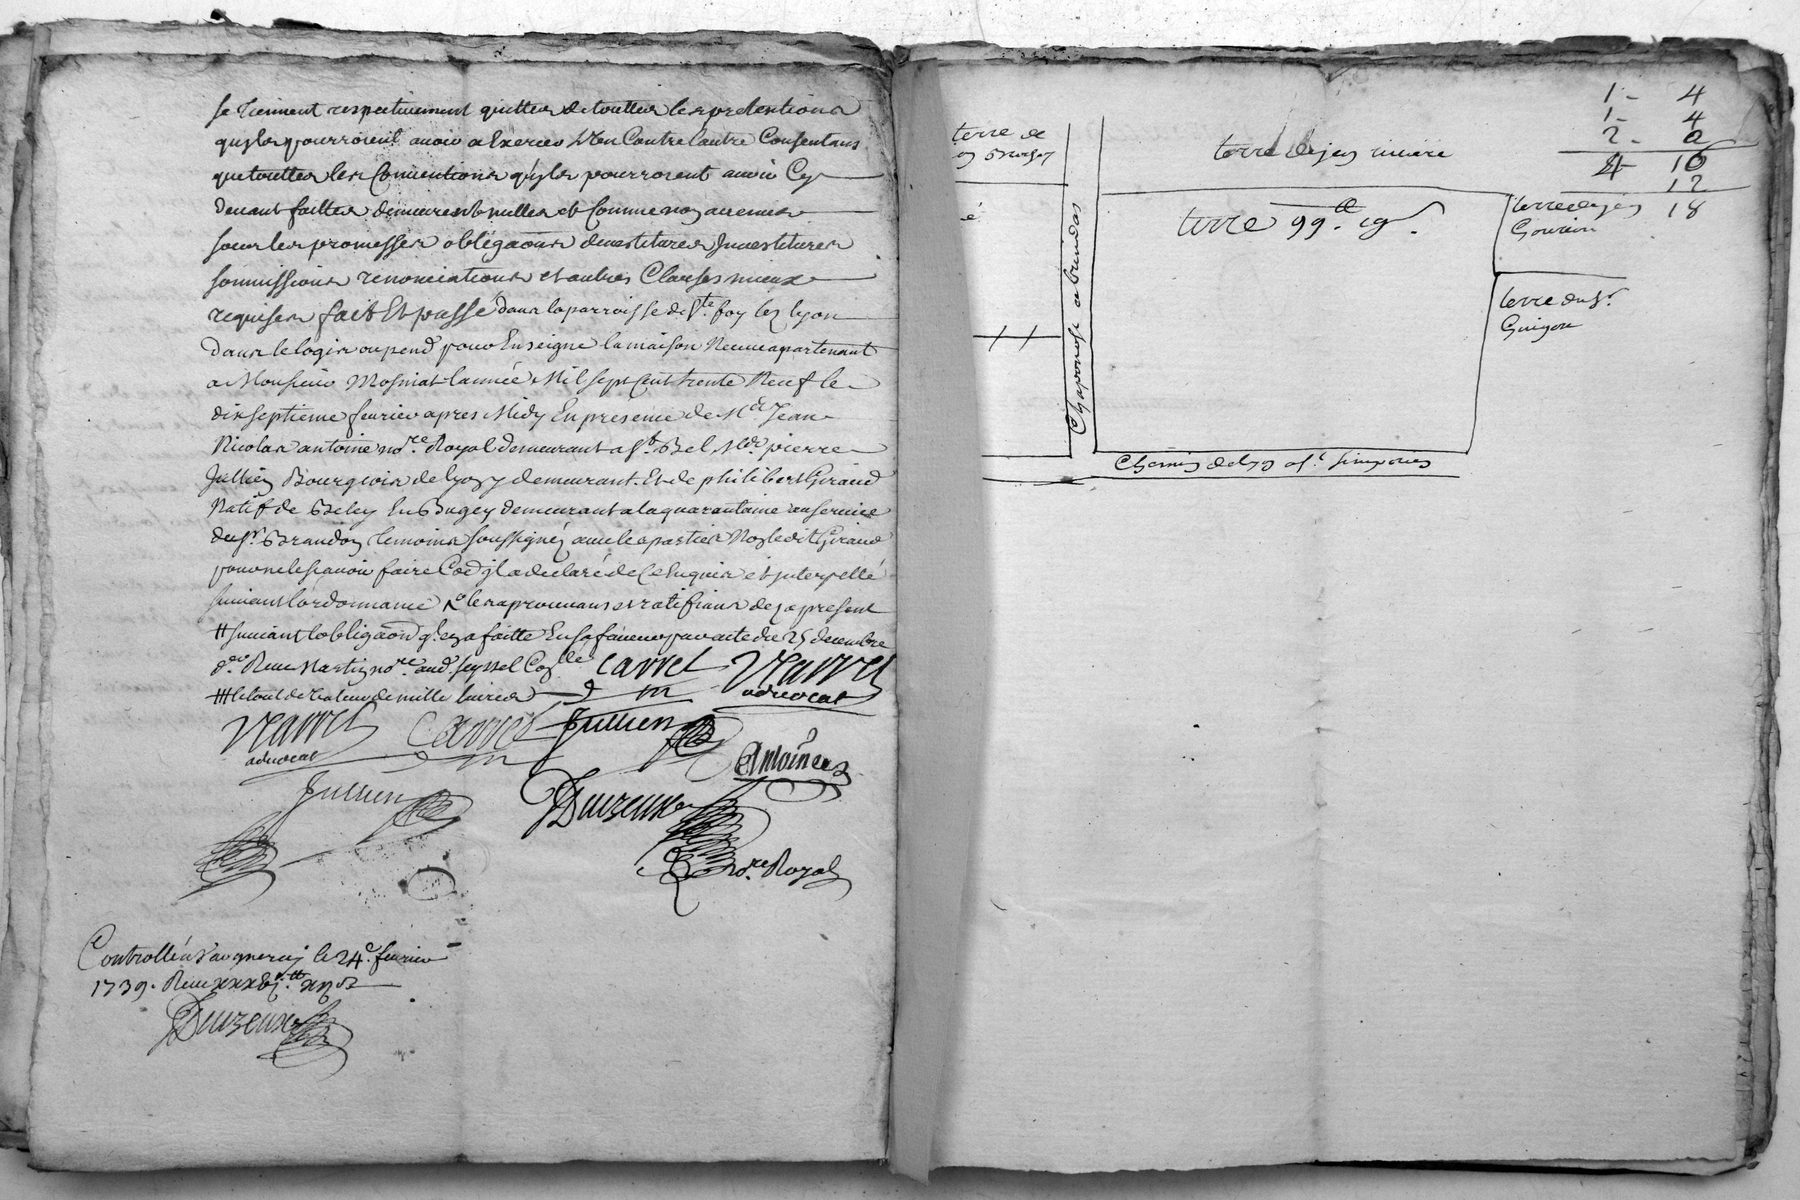 se tiennent respectivement quittes de touttes les pretentions
qu'jls pourroient avoir a Exercer L'un Contre lautre Consentans
que touttes les Conventions qu'jls pourroient avoir Cy
devant faittes demeurent nulles et Comme non avenues
sour les promesses obligaons devestitures Jnvestitures
soumissions renonciations et autres Clauses mieux
requises fait Et passé dans la parroisse de Ste. foy lez lyon
dans le logis ou pend pour Enseigne la maison Neuve apartenant
a Monsieur Mosniat lannée Mil sept Cent trente Neuf le
dix septieme fevrier apres Midy En presence de Jean
Nicolas antoine nore. Royal demeurant a st. Bel pierre
Jullien Bourgeois de lyon y demeurant. Et de philibert Giraud
Natif de Beley En Bugey demeurant a la quarantaine au service
du sr. Brandon temoins soussignéz avec les parties Non ledit Giraud
pour ne le sçavoir faire Ce qu'jl a declaré de Ce Enquis et jnterpellé
suivant lordonnance les aprouvans et ratifians des a present
# suivant lobligaon qu'jl en a faitte En sa faveur par acte du 25 decembre
dr. Reçu Martin nore. aud. seyssel Carret Navvet
advocat
## le tout de valeur de mille livres
Navvet Carret Jullien
advocat
Antoine
Jullien
Duvzeux
nore. Royal
Controllé a le 24e. fevrier
1739. Reçu
Duvzeux
1 - 4
1 - 4
2 - 2
4 - 10
12
18
terre de
terre de jean riviere
terre 99.
terre de jean
Gouvion
terre du sr.
Guigou
Chaponost a brindas
Chemin de lyon a st. simphorien